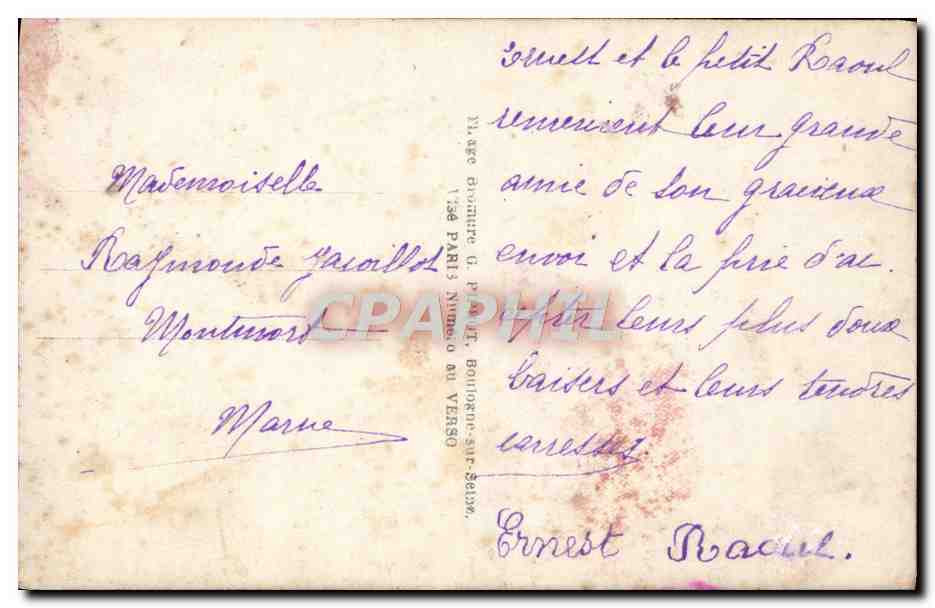 Mademoiselle
Raymonde Jacoillot
Montmort
Marne
et le petit Raoul
remercient leur grande
amie de son gracieux
envoi et la prie d'ac.
leurs plus doux
baisers et leurs tendres
carresses.
Ernest Raoul.
Bromure G. Boulogne-sur-Seine.
Visé PARIS Numéro au VERSO
CPAPHIL